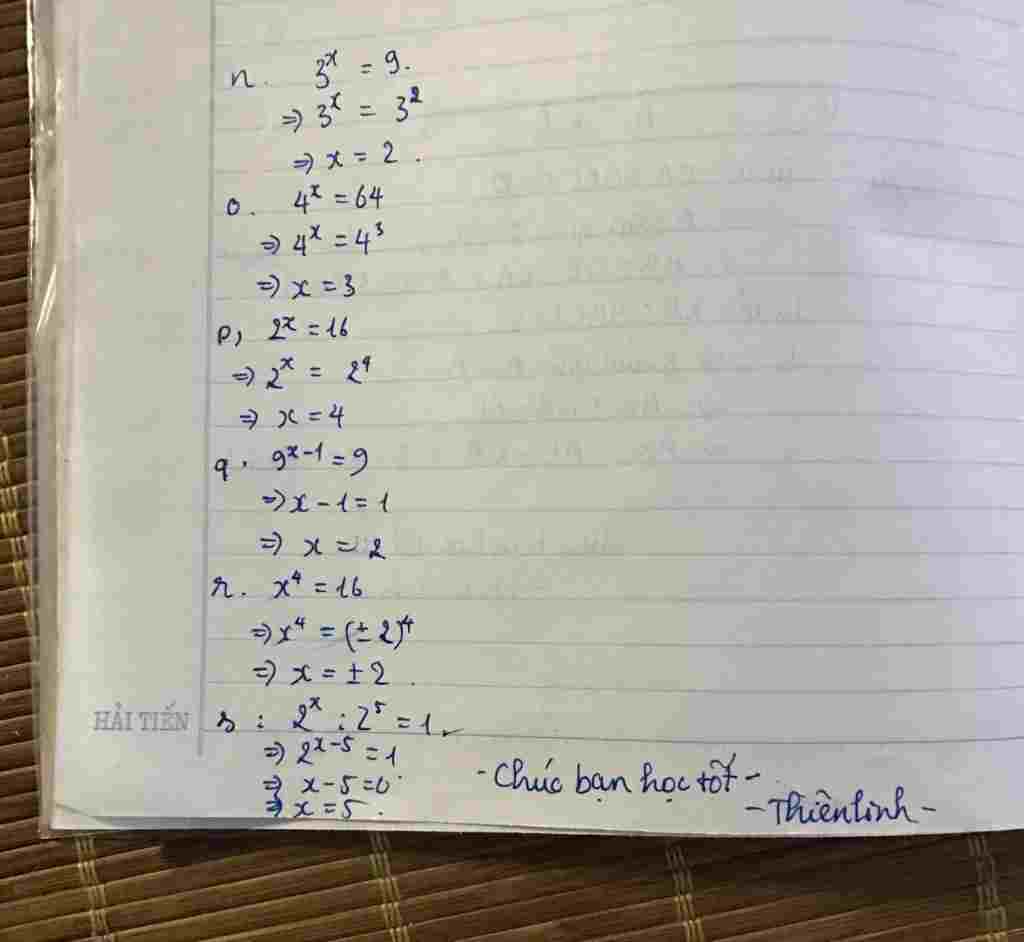 n. 3ˣ = 9.
⇒ 3ˣ = 3²
⇒ x = 2.
o. 4ˣ = 64
⇒ 4ˣ = 4³
⇒ x = 3
p, 2ˣ = 16
⇒ 2ˣ = 2⁴
⇒ x = 4
q. 9ˣ⁻¹ = 9
⇒ x - 1 = 1
⇒ x = 2
r. x⁴ = 16
⇒ x⁴ = (± 2)⁴
⇒ x = ± 2.
HẢI TIẾN
s : 2ˣ : 2⁵ = 1
⇒ 2ˣ⁻⁵ = 1
⇒ x - 5 = 0
⇒ x = 5.
- Chúc bạn học tốt -
- Thiên Linh -